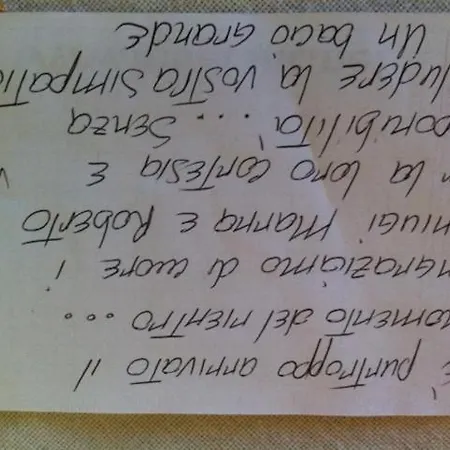 E' purtroppo arrivato il
omento del rientro ...
ngraziamo di cuore i
niugi Marna e Roberto
r la loro cortesia e
onibilità ... Senza
ludere la vostra simpatic
Un bacio grande